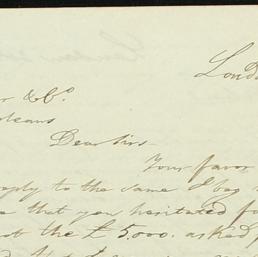 Lond
r & Co
rleans
Dear Sirs
Your favor
reply to the same I beg
that you hesitated fo
the £5,000. asked